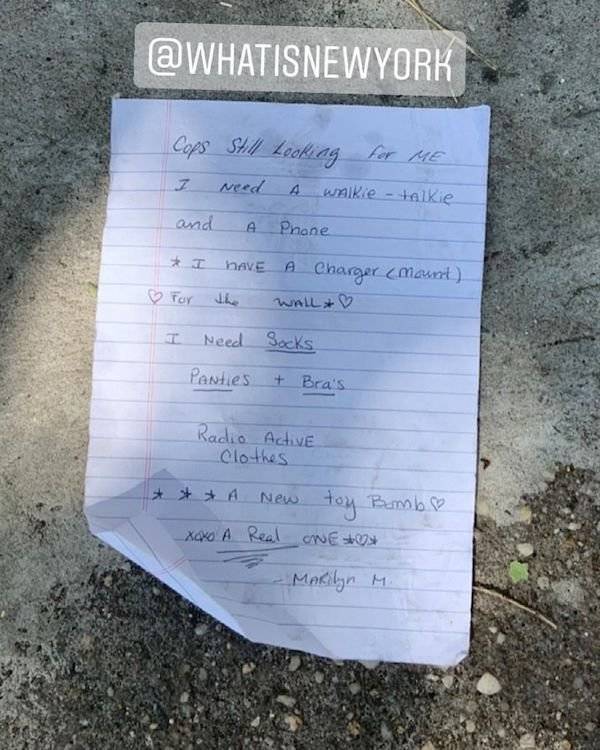 @WHATISNEWYORK
Cops Still Looking for ME
I Need A walkie - talkie
and A Phone
* I HAVE A Charger (Mount)
♡ For the WALL * ♡
I Need Socks
Panties + Bra's
Radio Active
Clothes
* * * A New toy Bomb ♡
xoxo A Real ONE *♡*
- Marilyn M.